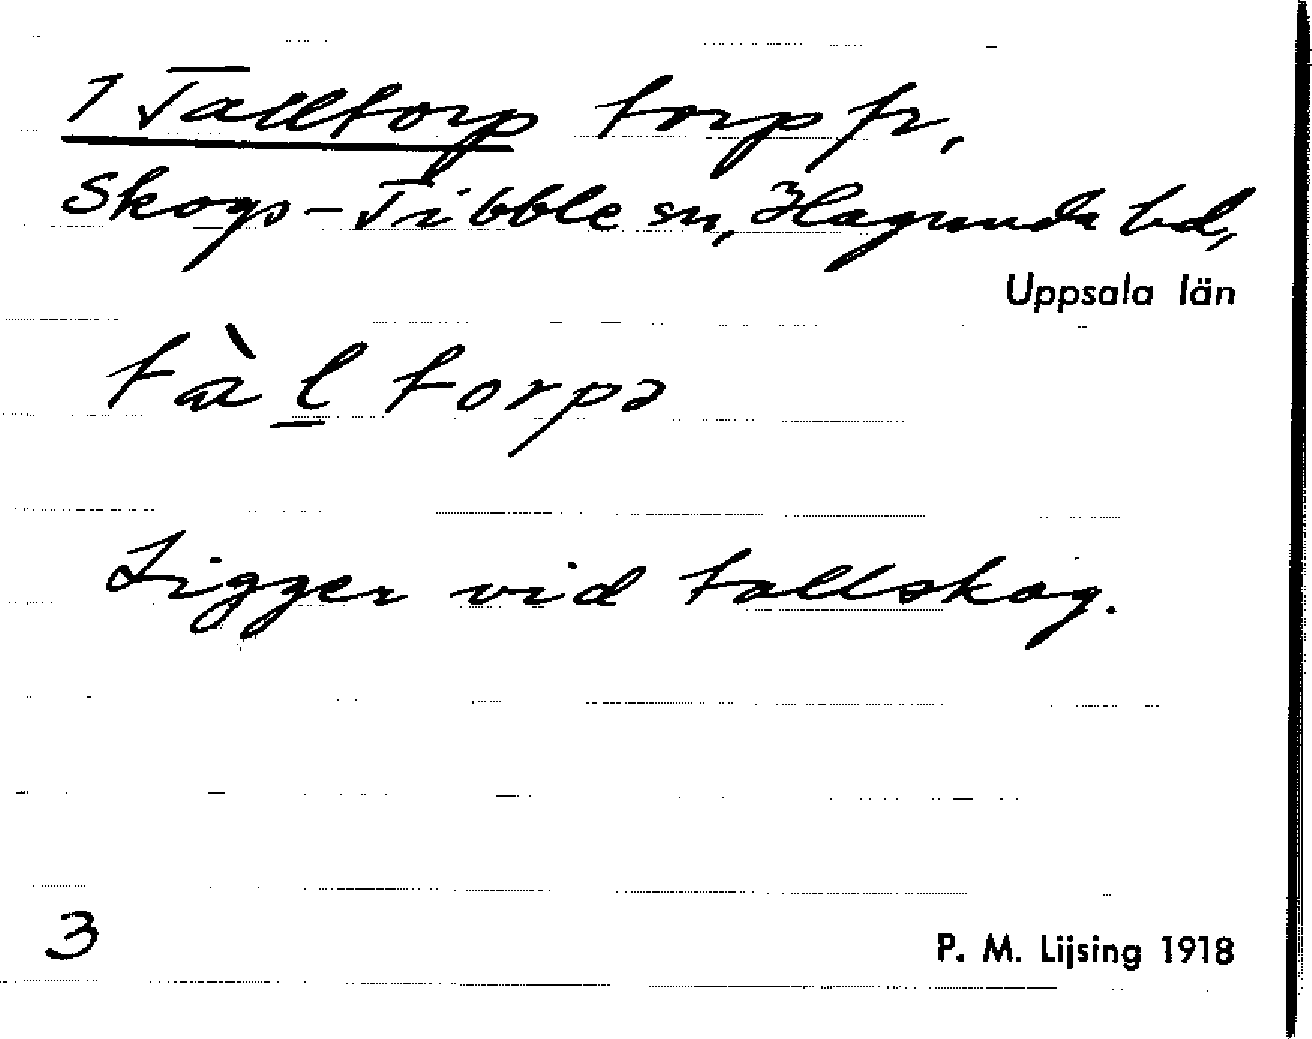 1 Talltorp torp fr,
Skogs-Tibble sn, Hagunda hd,
Uppsala län
tàl torpə
Ligger vid tallskog.
3
P. M. Lijsing 1918